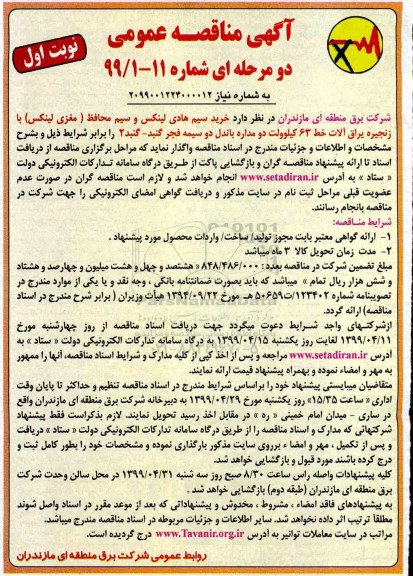 آگهی مناقصه عمومی
دو مرحله ای شماره ۱۱-۹۹/۱
نوبت اول
به شماره نیاز ۲۰۹۹۰۰۱۲۲۴۰۰۰۰۱۲
شرکت برق منطقه ای مازندران در نظر دارد خرید سیم هادی لینکس و سیم محافظ ( مغزی لینکس) با
زنجیره یراق آلات خط ۶۳ کیلوولت دو مداره باندل دو سیمه فجر گنبد- گنبد۲ را برابر شرایط ذیل و بشرح
مشخصات و اطلاعات و جزئیات مندرج در اسناد مناقصه واگذار نماید که مراحل برگزاری مناقصه از دریافت
اسناد تا ارائه پیشنهاد مناقصه گران و بازگشایی پاکت از طریق درگاه سامانه تدارکات الکترونیکی دولت
« ستاد » به آدرس www.setadiran.ir انجام خواهد شد و لازم است مناقصه گران در صورت عدم
عضویت قبلی مراحل ثبت نام در سایت مذکور و دریافت گواهی امضای الکترونیکی را جهت شرکت در
مناقصه بانجام رسانند.
شرایط مناقصه:
۱- ارائه گواهی معتبر بابت مجوز تولید/ ساخت/ واردات محصول مورد پیشنهاد .
۲- مدت زمان تحویل کالا ۳ ماه میباشد
مبلغ تضمین شرکت در مناقصه بعدد : ۸۴۸/۴۸۶/۰۰۰ « هشتصد و چهل و هشت میلیون و چهارصد و هشتاد
و شش هزار ریال تمام » میباشد که باید بصورت ضمانتنامه بانکی ، وجه نقد و یا یکی از موارد مندرج در
تصویبنامه شماره ۱۲۳۴۰۲/ت۵۰۶۵۹هـ مورخ ۱۳۹۴/۰۹/۲۲ هیأت وزیران ( برابر شرح مندرج در اسناد
مناقصه) ارائه گردد.
ازشرکتهای واجد شرایط دعوت میگردد جهت دریافت اسناد مناقصه از روز چهارشنبه مورخ
۱۳۹۹/۰۴/۱۱ لغایت روز یکشنبه ۱۳۹۹/۰۴/۱۵ به درگاه سامانه تدارکات الکترونیکی دولت « ستاد » به
آدرس www.setadiran.ir مراجعه و پس از اخذ کپی از کلیه مدارک و شرایط اسناد مناقصه، آنها را ممهور
به مهر و امضاء نموده و بهمراه پیشنهاد قیمت ارائه نمایند.
متقاضیان میبایستی پیشنهاد خود را براساس شرایط مندرج در اسناد مناقصه تنظیم و حداکثر تا پایان وقت
اداری « ساعت ۱۵/۳۵» روز یکشنبه مورخ ۱۳۹۹/۰۴/۲۹ به دبیرخانه شرکت برق منطقه ای مازندران واقع
در ساری - میدان امام خمینی « ره » در مقابل اخذ رسید تحویل نمایند. لازم بذکراست فقط پیشنهاد
شرکتهائی که مدارک و اسناد مناقصه را از طریق درگاه سامانه تدارکات الکترونیکی دولت « ستاد » دریافت
و پس از تکمیل ، مهر و امضاء برروی سایت مذکور بارگذاری نموده و مشخصات خود را بطور کامل ثبت و
درج کرده باشند مورد قبول و بازگشایی خواهد شد.
کلیه پیشنهادات واصله راس ساعت ۸/۳۰ صبح روز سه شنبه ۱۳۹۹/۰۴/۳۱ در محل سالن وحدت شرکت
برق منطقه ای مازندران (طبقه دوم) بازگشایی خواهد شد .
به پیشنهادهای فاقد امضاء ، مشروط ، مخدوش و پیشنهاداتی که بعد از موعد مقرر در اسناد واصل شوند
مطلقاً ترتیب اثر داده نخواهد شد. سایر اطلاعات و جزئیات مربوطه در اسناد مناقصه مندرج میباشد.
مراتب در سایت معاملات توانیر به آدرس www.Tavanir.org.ir درج گردیده است.
روابط عمومی شرکت برق منطقه ای مازندران